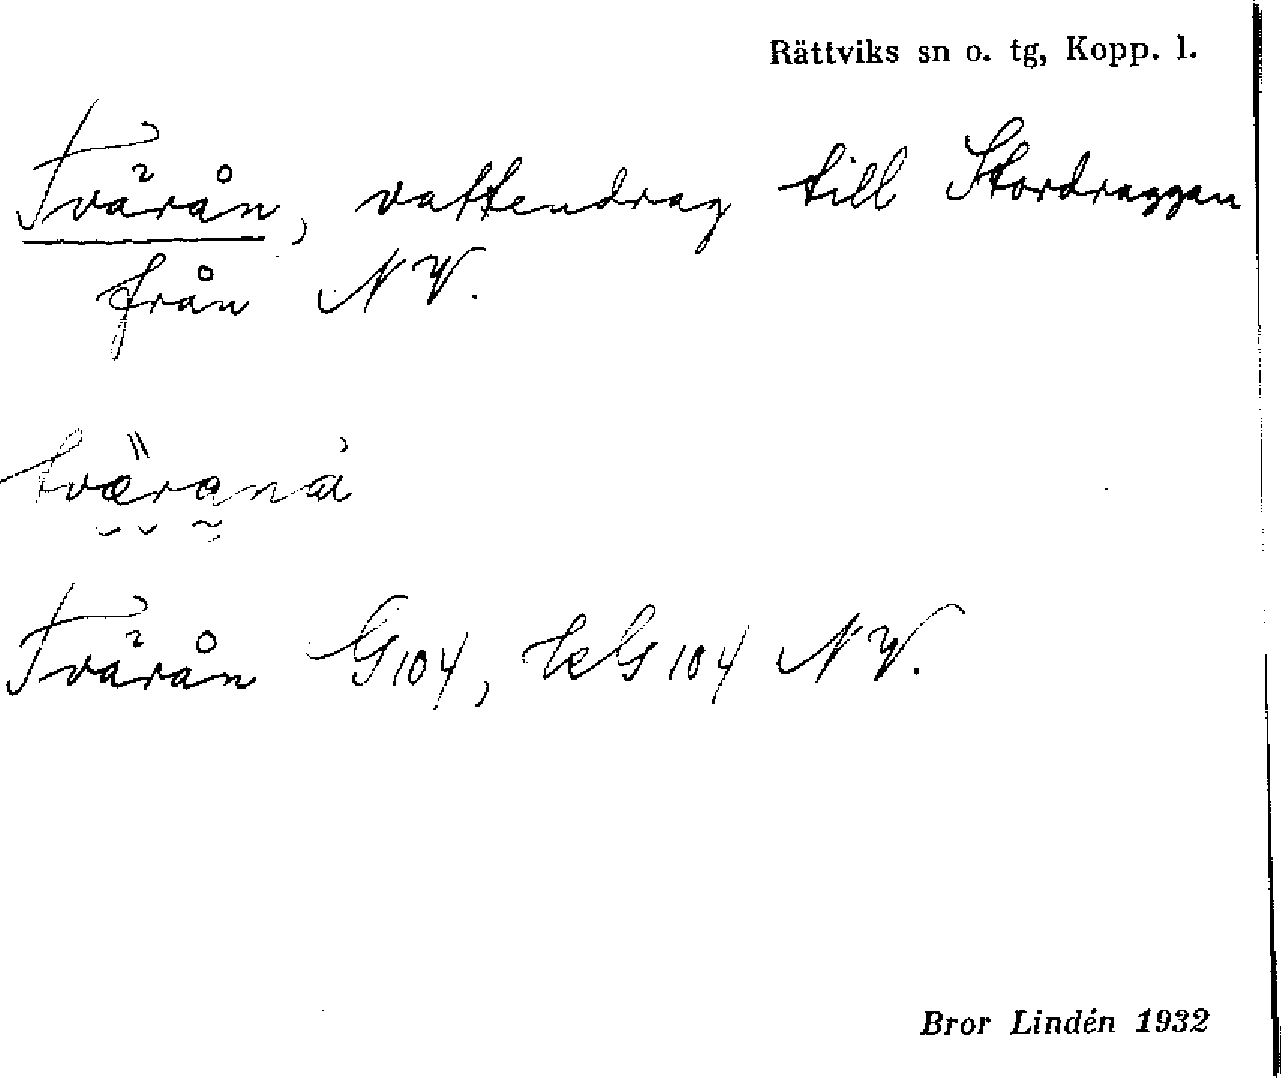 Rättviks sn o. tg, Kopp. l.
Tvärån, vattendrag till Stordraggen
från NV.
Tvärån G104, NV.
Bror Lindén 1932